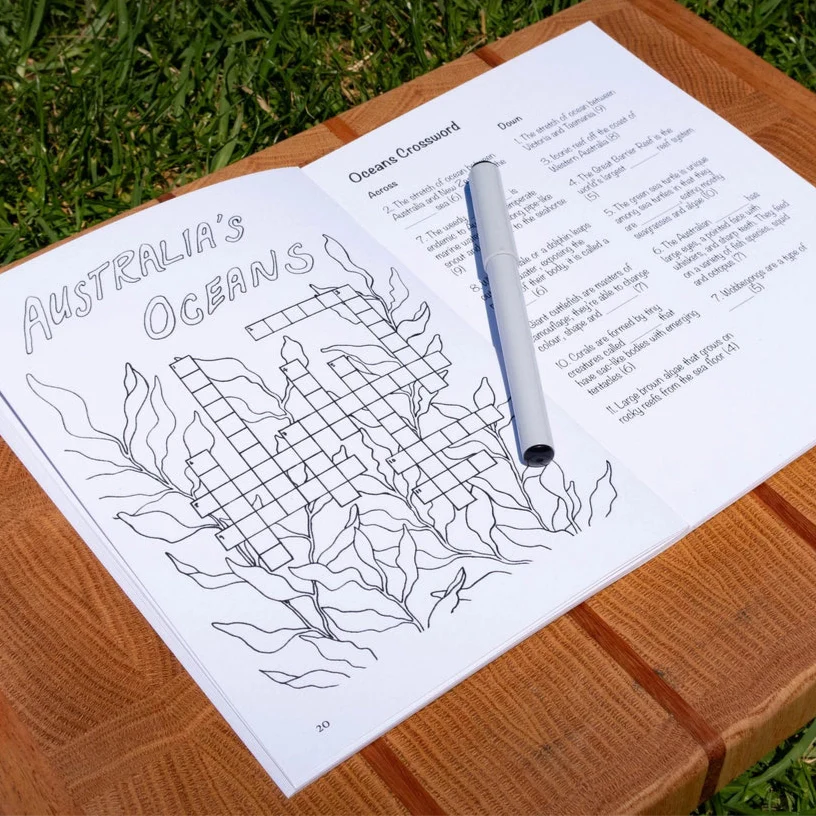 AUSTRALIA'S
OCEANS
20
Oceans Crossword
Across
2. The stretch of ocean between
Australia and New Z the
sea (6)
7. The weedy is
endemic to temperate
marine ong pipe-like
snout to the seahorse
(9)
8. ale or a dolphin leaps
water, exposing the
of their body, it is called a
(6)
Giant cuttlefish are masters of
camouflage; they're able to change
colour, shape and ______ (7)
10. Corals are formed by tiny
creatures called ______ that
have sac-like bodies with emerging
tentacles (6)
11. Large brown algae that grows on
rocky reefs from the sea floor (4)
Down
1. The stretch of ocean between
Victoria and Tasmania (9)
3. Iconic reef off the coast of
Western Australia (8)
4. The Great Barrier Reef is the
world's largest ______ reef system
(5)
5. The green sea turtle is unique
among sea turtles in that they
are ______ eating mostly
seagrasses and algae (10)
6. The Australian ______ has
large eyes, a pointed face with
whiskers, and sharp teeth. They feed
on a variety of fish species, squid
and octopus (7)
7. Wobbegongs are a type of
______ (5)